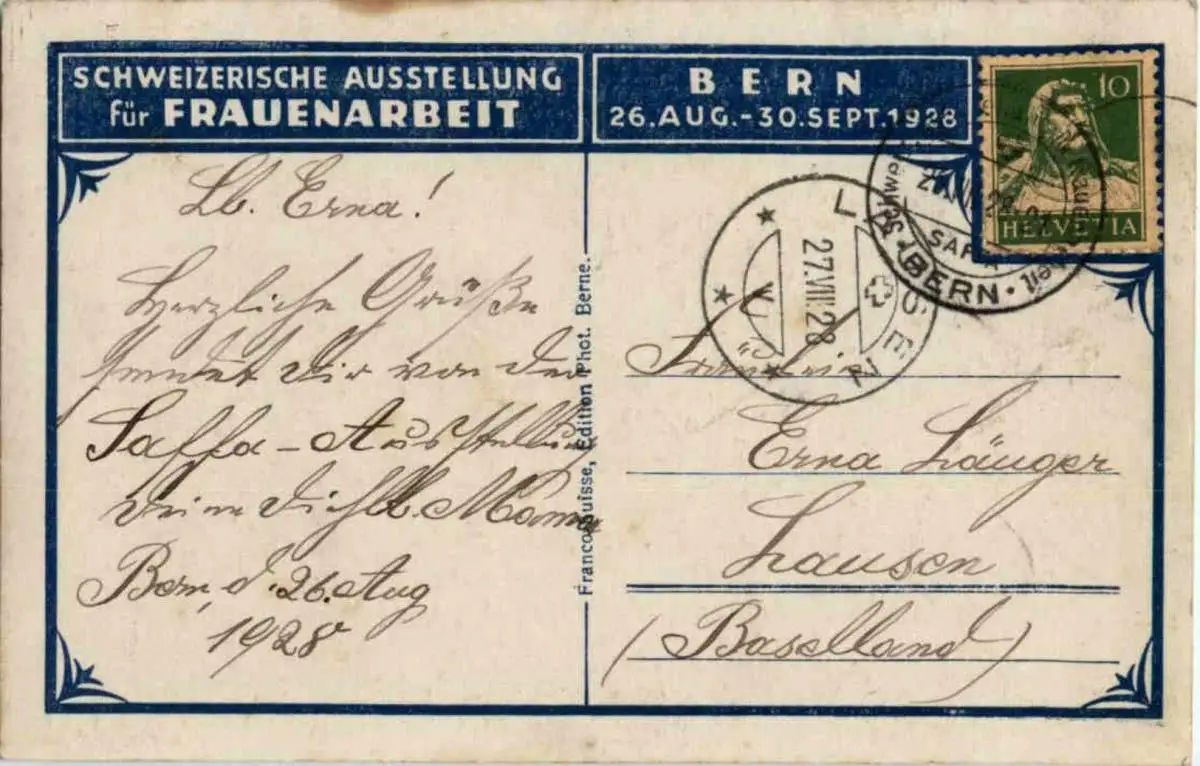 SCHWEIZERISCHE AUSSTELLUNG
für FRAUENARBEIT
BERN
26.AUG.-30.SEPT.1928
10
HELVETIA
SAFFA
BERN
LAUSEN
27.VIII.28
Lb. Erna!
Herzliche Grüße
sendet Dir von der
Saffa-Ausstellung
Deine Dichlb. Mama
Bern, d. 26. Aug
1928
Francosuisse, Edition Phot. Berne.
Fräulein
Erna Läuger
Lausen
(Baselland)